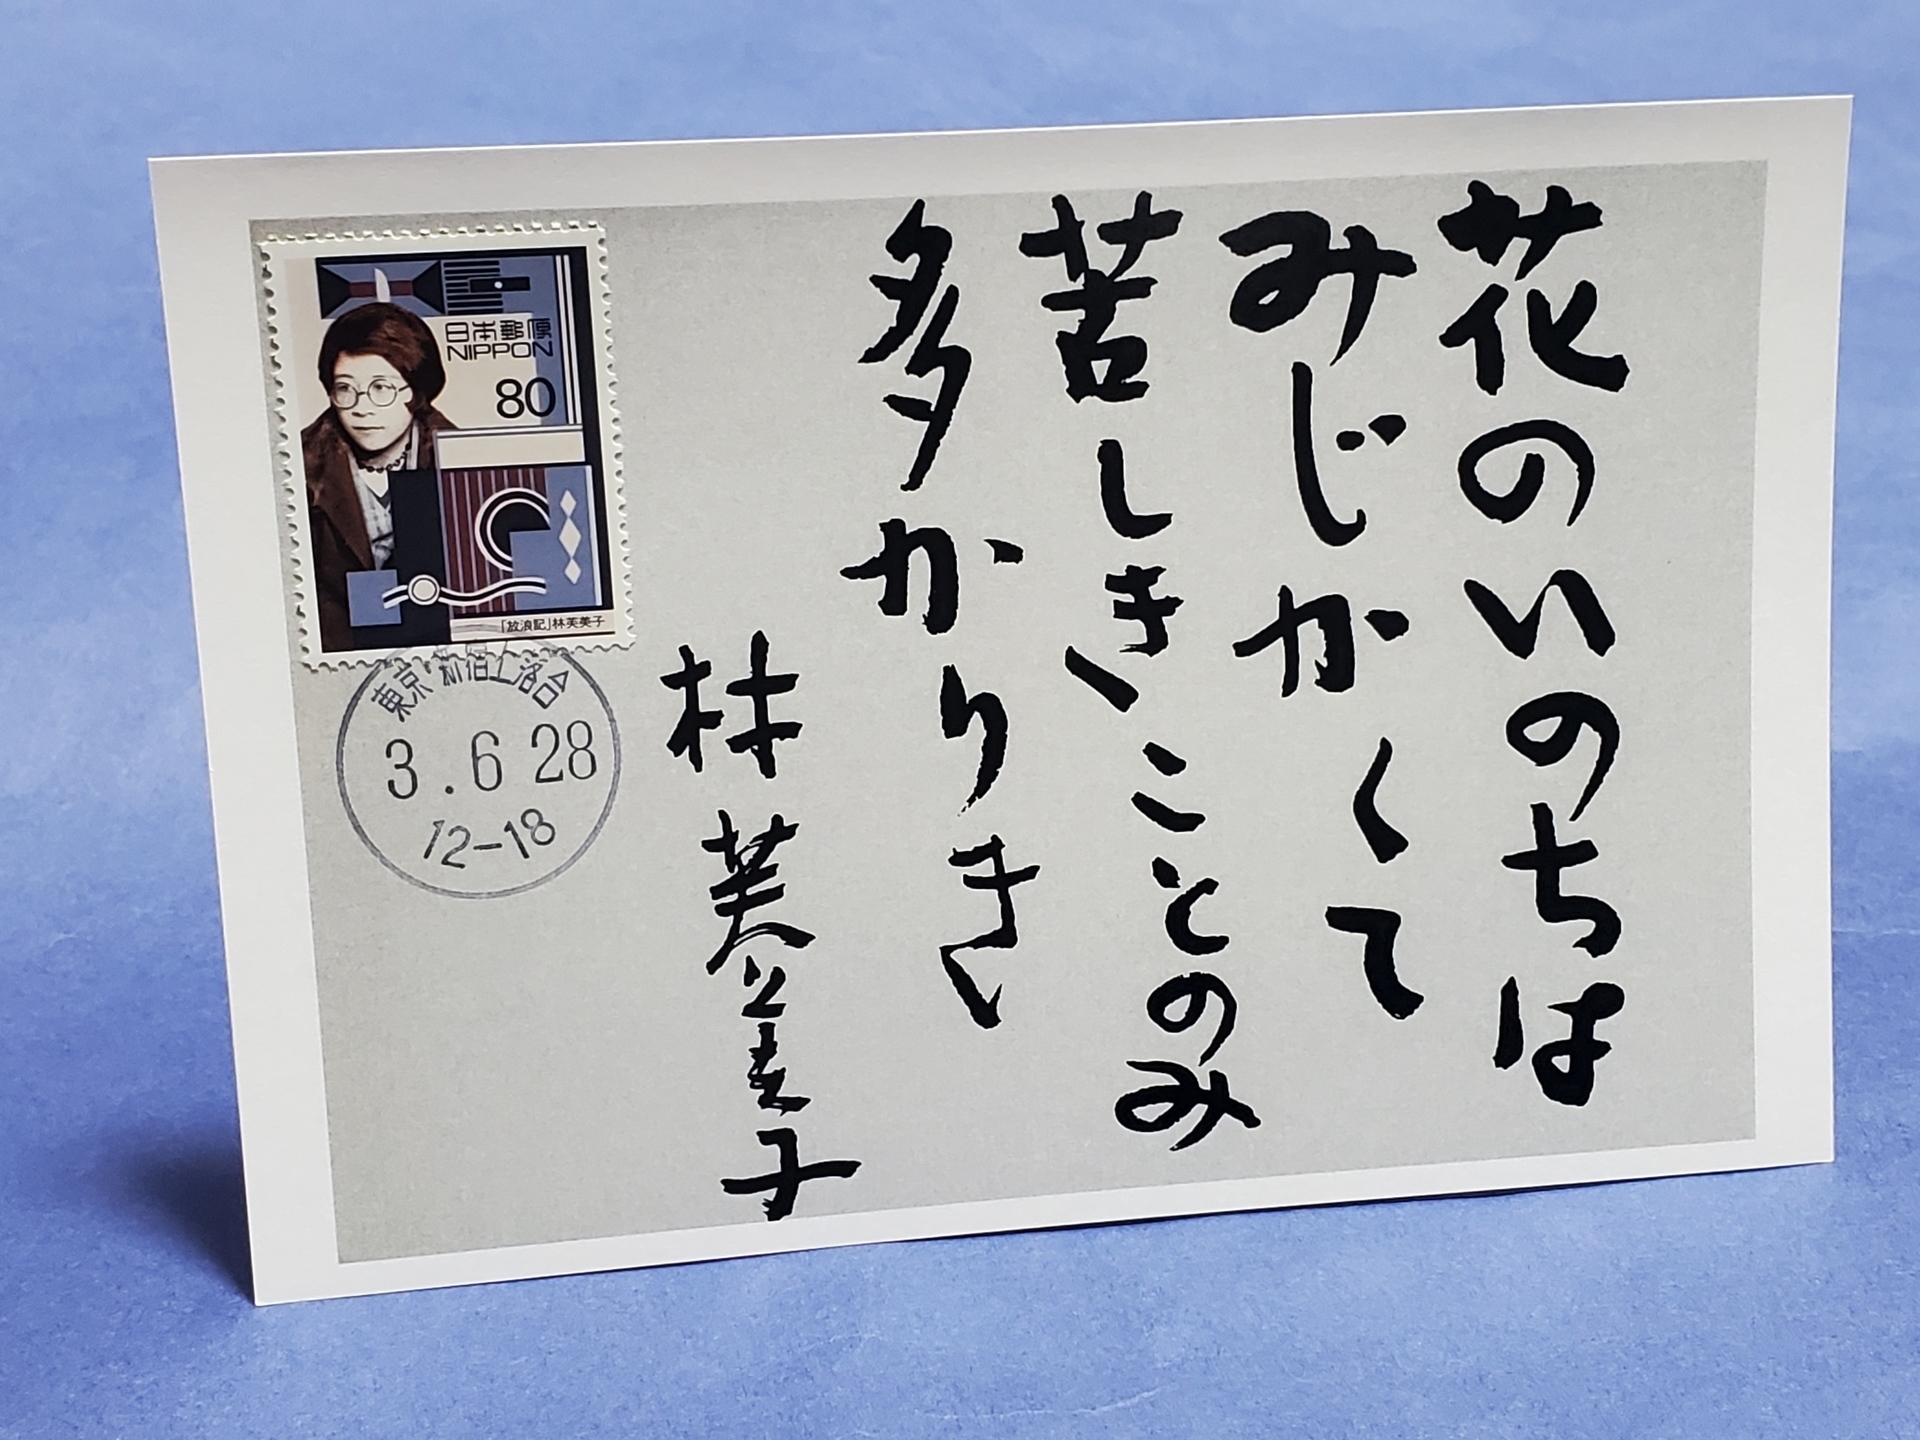 花のいのちは
みじかくて
苦しきことのみ
多かりき
林芙美子
日本郵便
NIPPON
80
「放浪記」林芙美子
東京・新宿上落合
3.6 28
12-18